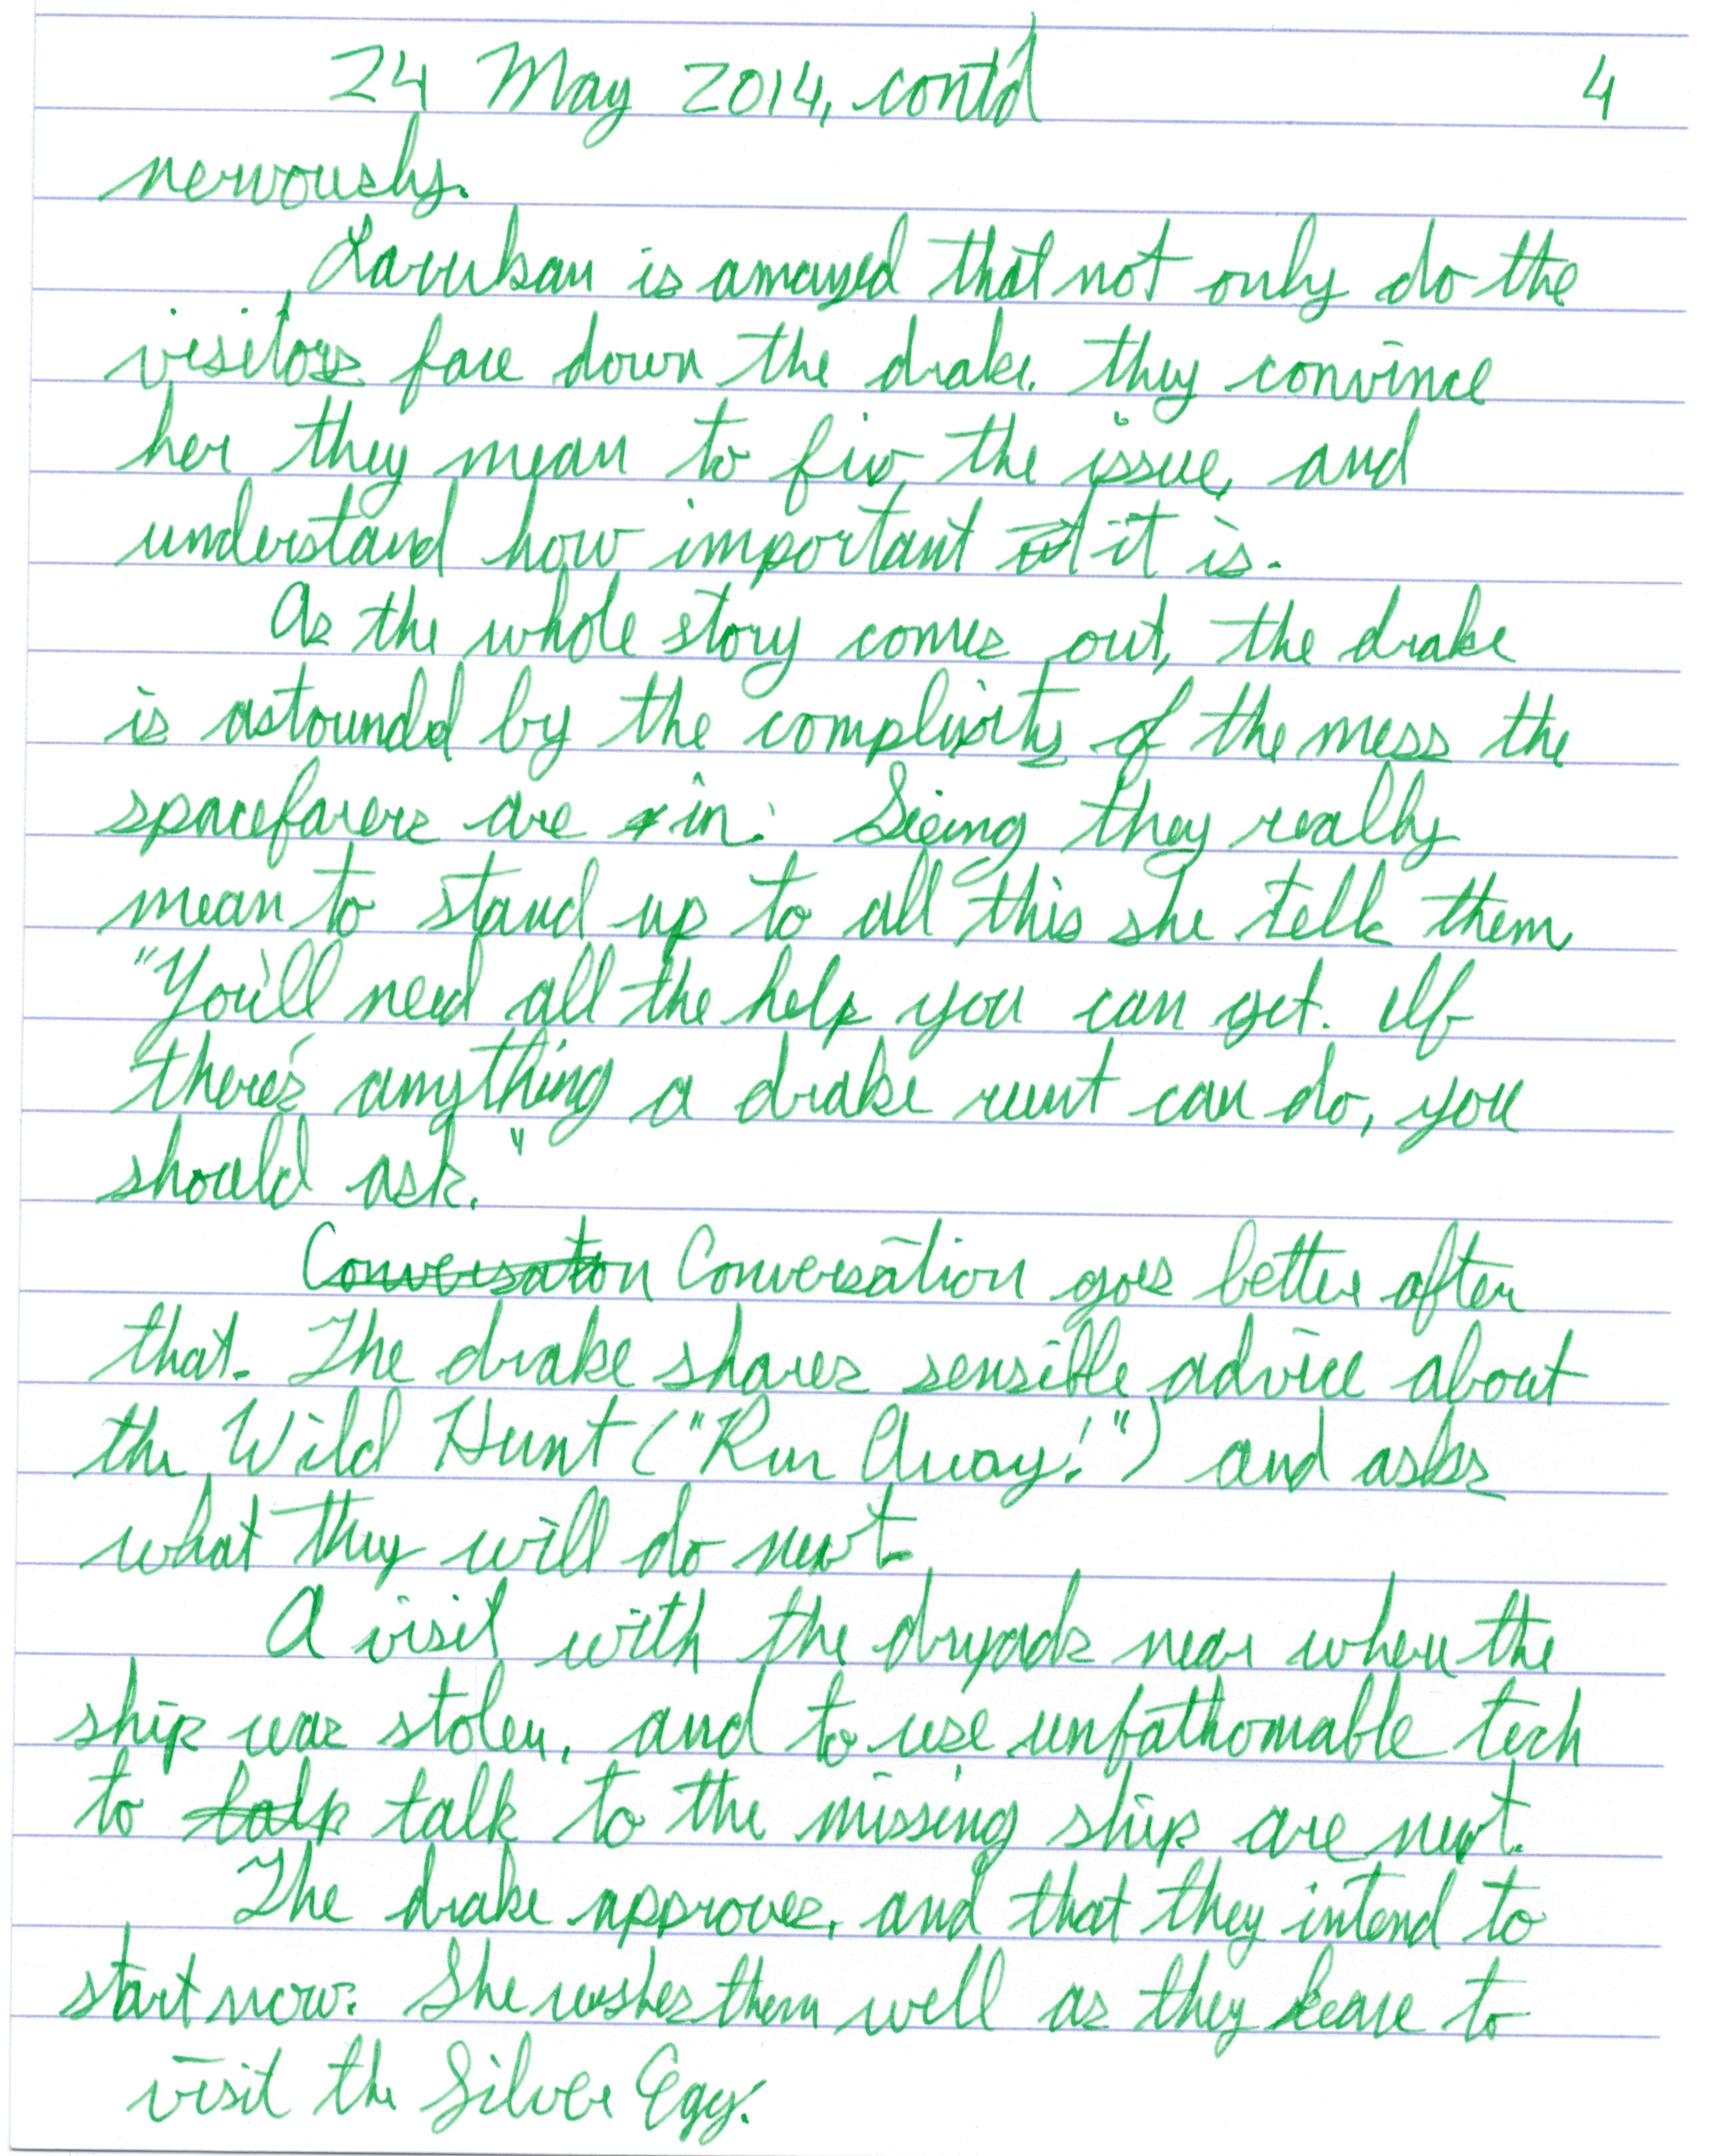 24 May 2014, cont'd 4
nervously.
Larukan is amazed that not only do the
visitors face down the drake, they convince
her they mean to fix the issue, and
understand how important it it is.
As the whole story comes out, the drake
is astounded by the complexity of the mess the
spacefarers are in. Seeing they really
mean to stand up to all this she tells them
"You'll need all the help you can get. If
there's anything a drake runt can do, you
should ask."
Conversaton Conversation goes better after
that. The drake shares sensible advice about
the Wild Hunt ("Run Away!") and asks
what they will do next.
A visit with the dryads near where the
ship was stolen, and to use unfathomable tech
to talk to the missing ship are next.
The drake approves, and that they intend to
start now. She wishes them well as they leave to
visit the Silver Egg.